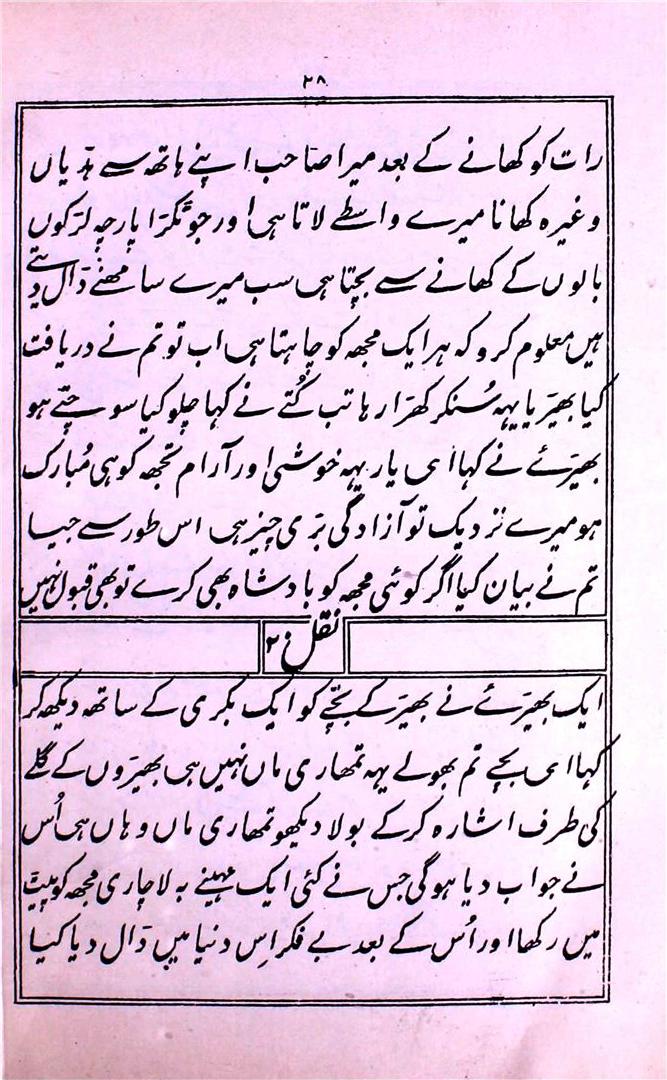 ۲۸
رات کو کھانے کے بعد میرا صاحب اپنے ہاتھ سے ہڈیاں
وغیرہ کھانا میرے واسطے لاتا ہی اور جو ٹکڑا پارچہ لڑکوں
بالوں کے کھانے سے بچتا ہی سب میرے سامھنے ڈال دیتے
ہیں معلوم کرو کہ ہر ایک مجھ کو چاہتا ہی اب تو تم نے دریافت
کیا بھیڑیا یہہ سُنکر کھڑا رہا تب کُتے نے کہا چلو کیا سوچتے ہو
بھیڑئے نے کہا ای یار یہہ خوشی اور آرام تجھ کو ہی مُبارک
ہو میرے نزدیک تو آزادگی بڑی چیز ہی اس طور سے جیسا
تم نے بیان کیا اگر کوئی مجھ کو بادشاہ بھی کرے تو بھی قبول نہیں
نقل ۲۰
ایک بھیڑئے نے بھیڑ کے بچّے کو ایک بکری کے ساتھ دیکھ کر
کہا ای بچے تم بھولے یہہ تمھاری ماں نہیں ہی بھیڑوں کے گلے
کی طرف اشارہ کرکے بولا دیکھو تمھاری ماں وہاں ہی اُس
نے جواب دیا ہوگی جس نے کئی ایک مہینے بہ لاچاری مجھ کو پیٹ
میں رکھا اور اُس کے بعد بے فکر اِس دنیا میں ڈال دیا کیا